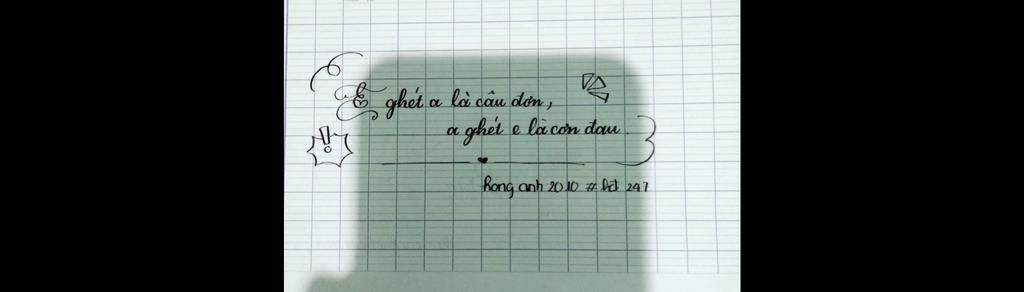 E ghét a là câu đơn,
a ghét e là cơn đau.
Rong anh 2010 # 247